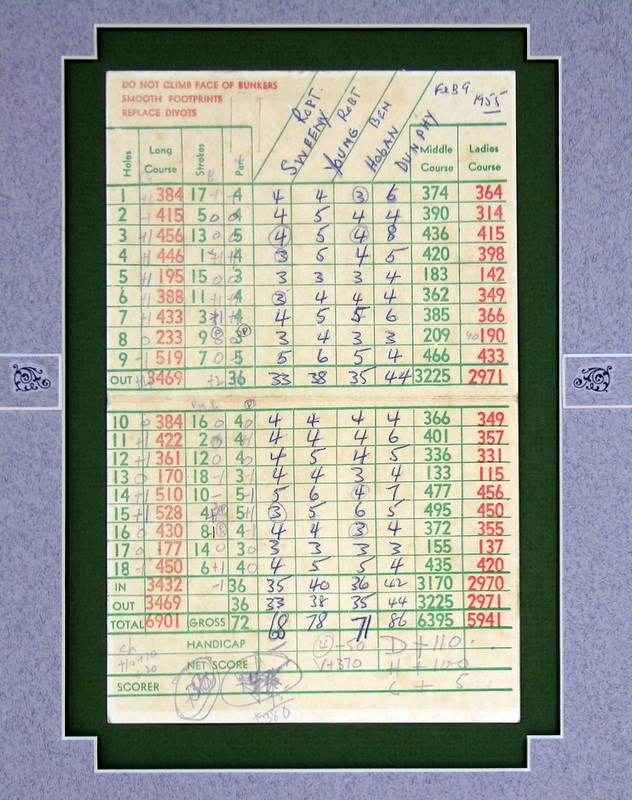 DO NOT CLIMB FACE OF BUNKERS
SMOOTH FOOTPRINTS
REPLACE DIVOTS
ROBT. SWEENY
ROBT YOUNG
BEN HOGAN
DUNPHY
FEB 9. 1955
Holes Long Course Strokes Par Middle Course Ladies Course
1 384 17 4 4 4 3 6 374 364
2 415 5 4 4 5 4 4 390 314
3 456 13 5 4 5 4 8 436 415
4 446 1 4 3 5 4 5 420 398
5 195 15 3 3 3 3 4 183 142
6 388 11 4 3 4 4 4 362 349
7 433 3 4 4 5 5 6 385 366
8 233 9 3 3 4 3 3 209 190
9 519 7 5 5 6 5 4 466 433
OUT 3469 +2 36 33 38 35 44 3225 2971
10 384 16 4 4 4 4 4 366 349
11 422 2 4 4 4 4 6 401 357
12 361 12 4 4 5 4 5 336 331
13 170 18 3 4 4 3 4 133 115
14 510 10 5 5 6 4 7 477 456
15 528 4 5 3 5 6 5 495 450
16 430 8 4 4 4 3 4 372 355
17 177 14 3 3 3 3 3 155 137
18 450 6 4 4 5 5 4 435 420
IN 3432 -1 36 35 40 36 42 3170 2970
OUT 3469 36 33 38 35 44 3225 2971
TOTAL 6901 GROSS 72 68 78 71 86 6395 5941
HANDICAP -50 D +110.
NET SCORE +370 H +100
SCORER + 5